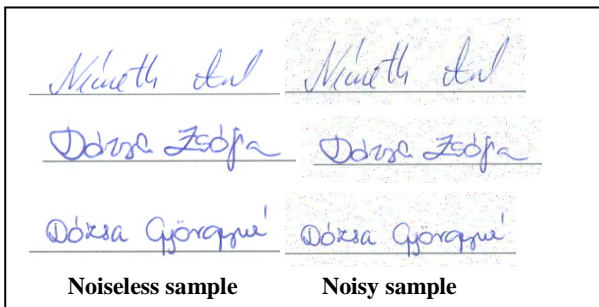 Németh And Németh And
Dózsa Zsófia Dózsa Zsófia
Dózsa Györgyné Dózsa Györgyné
Noiseless sample Noisy sample